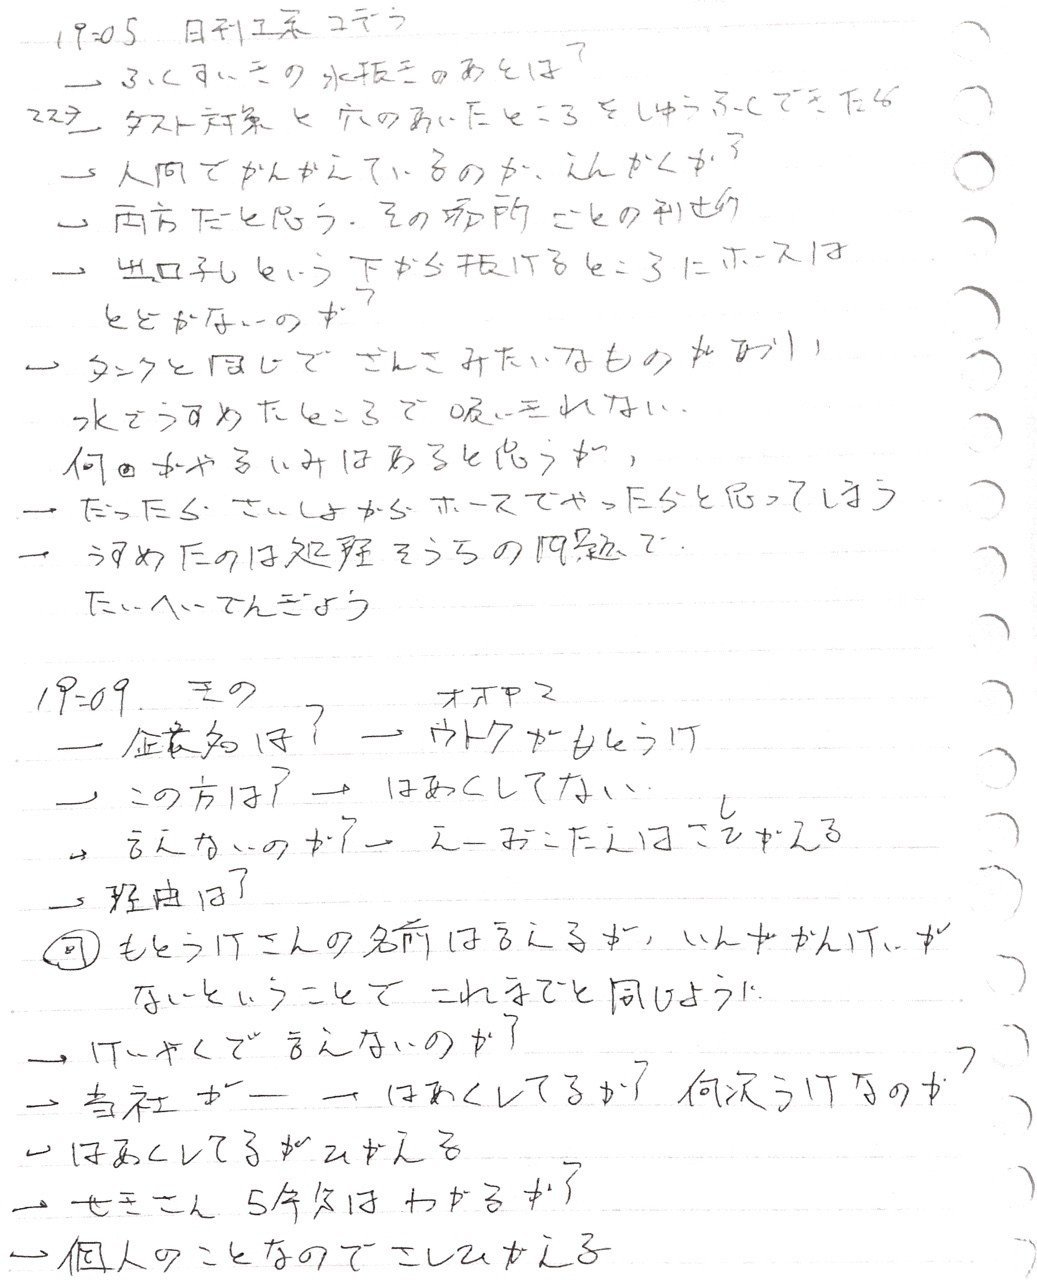 19:05 日刊工系 コデラ
→ ふくすいきの水抜きのあとは?
223 → タスト対象と穴のあいたところをしゅうふくできたら
→ 人間でかんがえているのか、えんかくか?
→ 両方だと思う。その場所ごとの判断
→ 出口孔という下から抜けるところにホースは
とどかないのか?
→ タンクと同じでざんさみたいなものが
水でうすめたところで吸いきれない。
何回かやるいみはあると思うが、
→ だったらさいしょからホースでやったらと思ってしまう
→ うすめたのは処理そうちの問題で。
たいへいてんぎょう
19:09. きの
オオヤマ
→ 企業名は? → ウトクがもとうけ
→ この方は? → はあくしてない。
→ 言えないのか? → えーおこたえはさしひかえる
→ 理由は?
もとうけさんの名前は言えるが、いんがかんけいが
ないということでこれまでと同じように
→ けいやくで言えないのか?
→ 当社がー → はあくしてるか? 何次うけなのか?
→ はあくしてるがひかえる
→ せきさん 5年分はわかるか?
→ 個人のことなのでさしひかえる